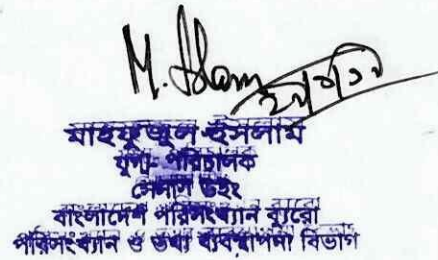 M. Islam
মাহফুজুল ইসলাম
যুগ্ম- পরিচালক
সেন্সাস উইং
বাংলাদেশ পরিসংখ্যান ব্যুরো
পরিসংখ্যান ও তথ্য ব্যবস্থাপনা বিভাগ